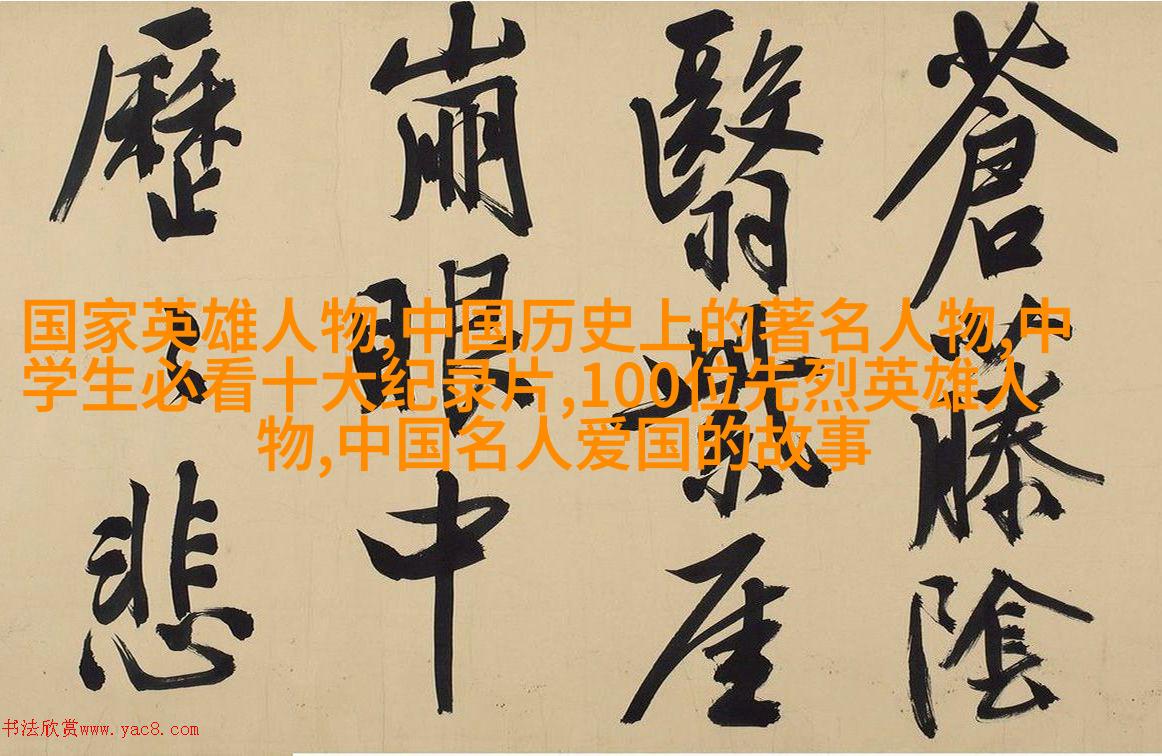 蒼藤陰
翳崖
崩眼中
歷悲
国家英雄人物,中国历史上的著名人物,中
学生必看十大纪录片,100位先烈英雄人
物,中国名人爱国的故事
书法欣赏www.yac8.com